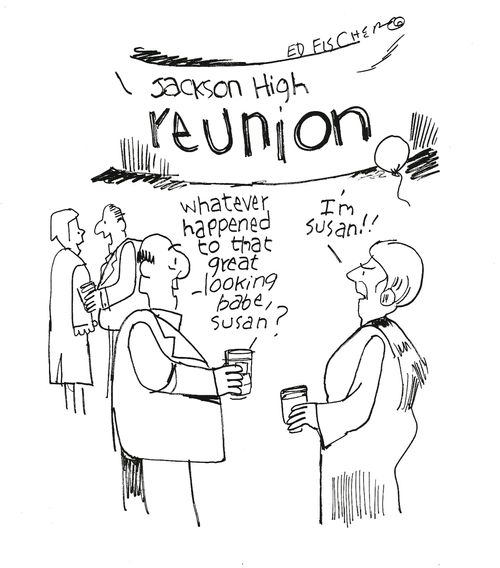 ED FISCHER
Jackson High
reunion
whatever
happened
to that
great
-looking
babe,
susan?
I'm
susan!!